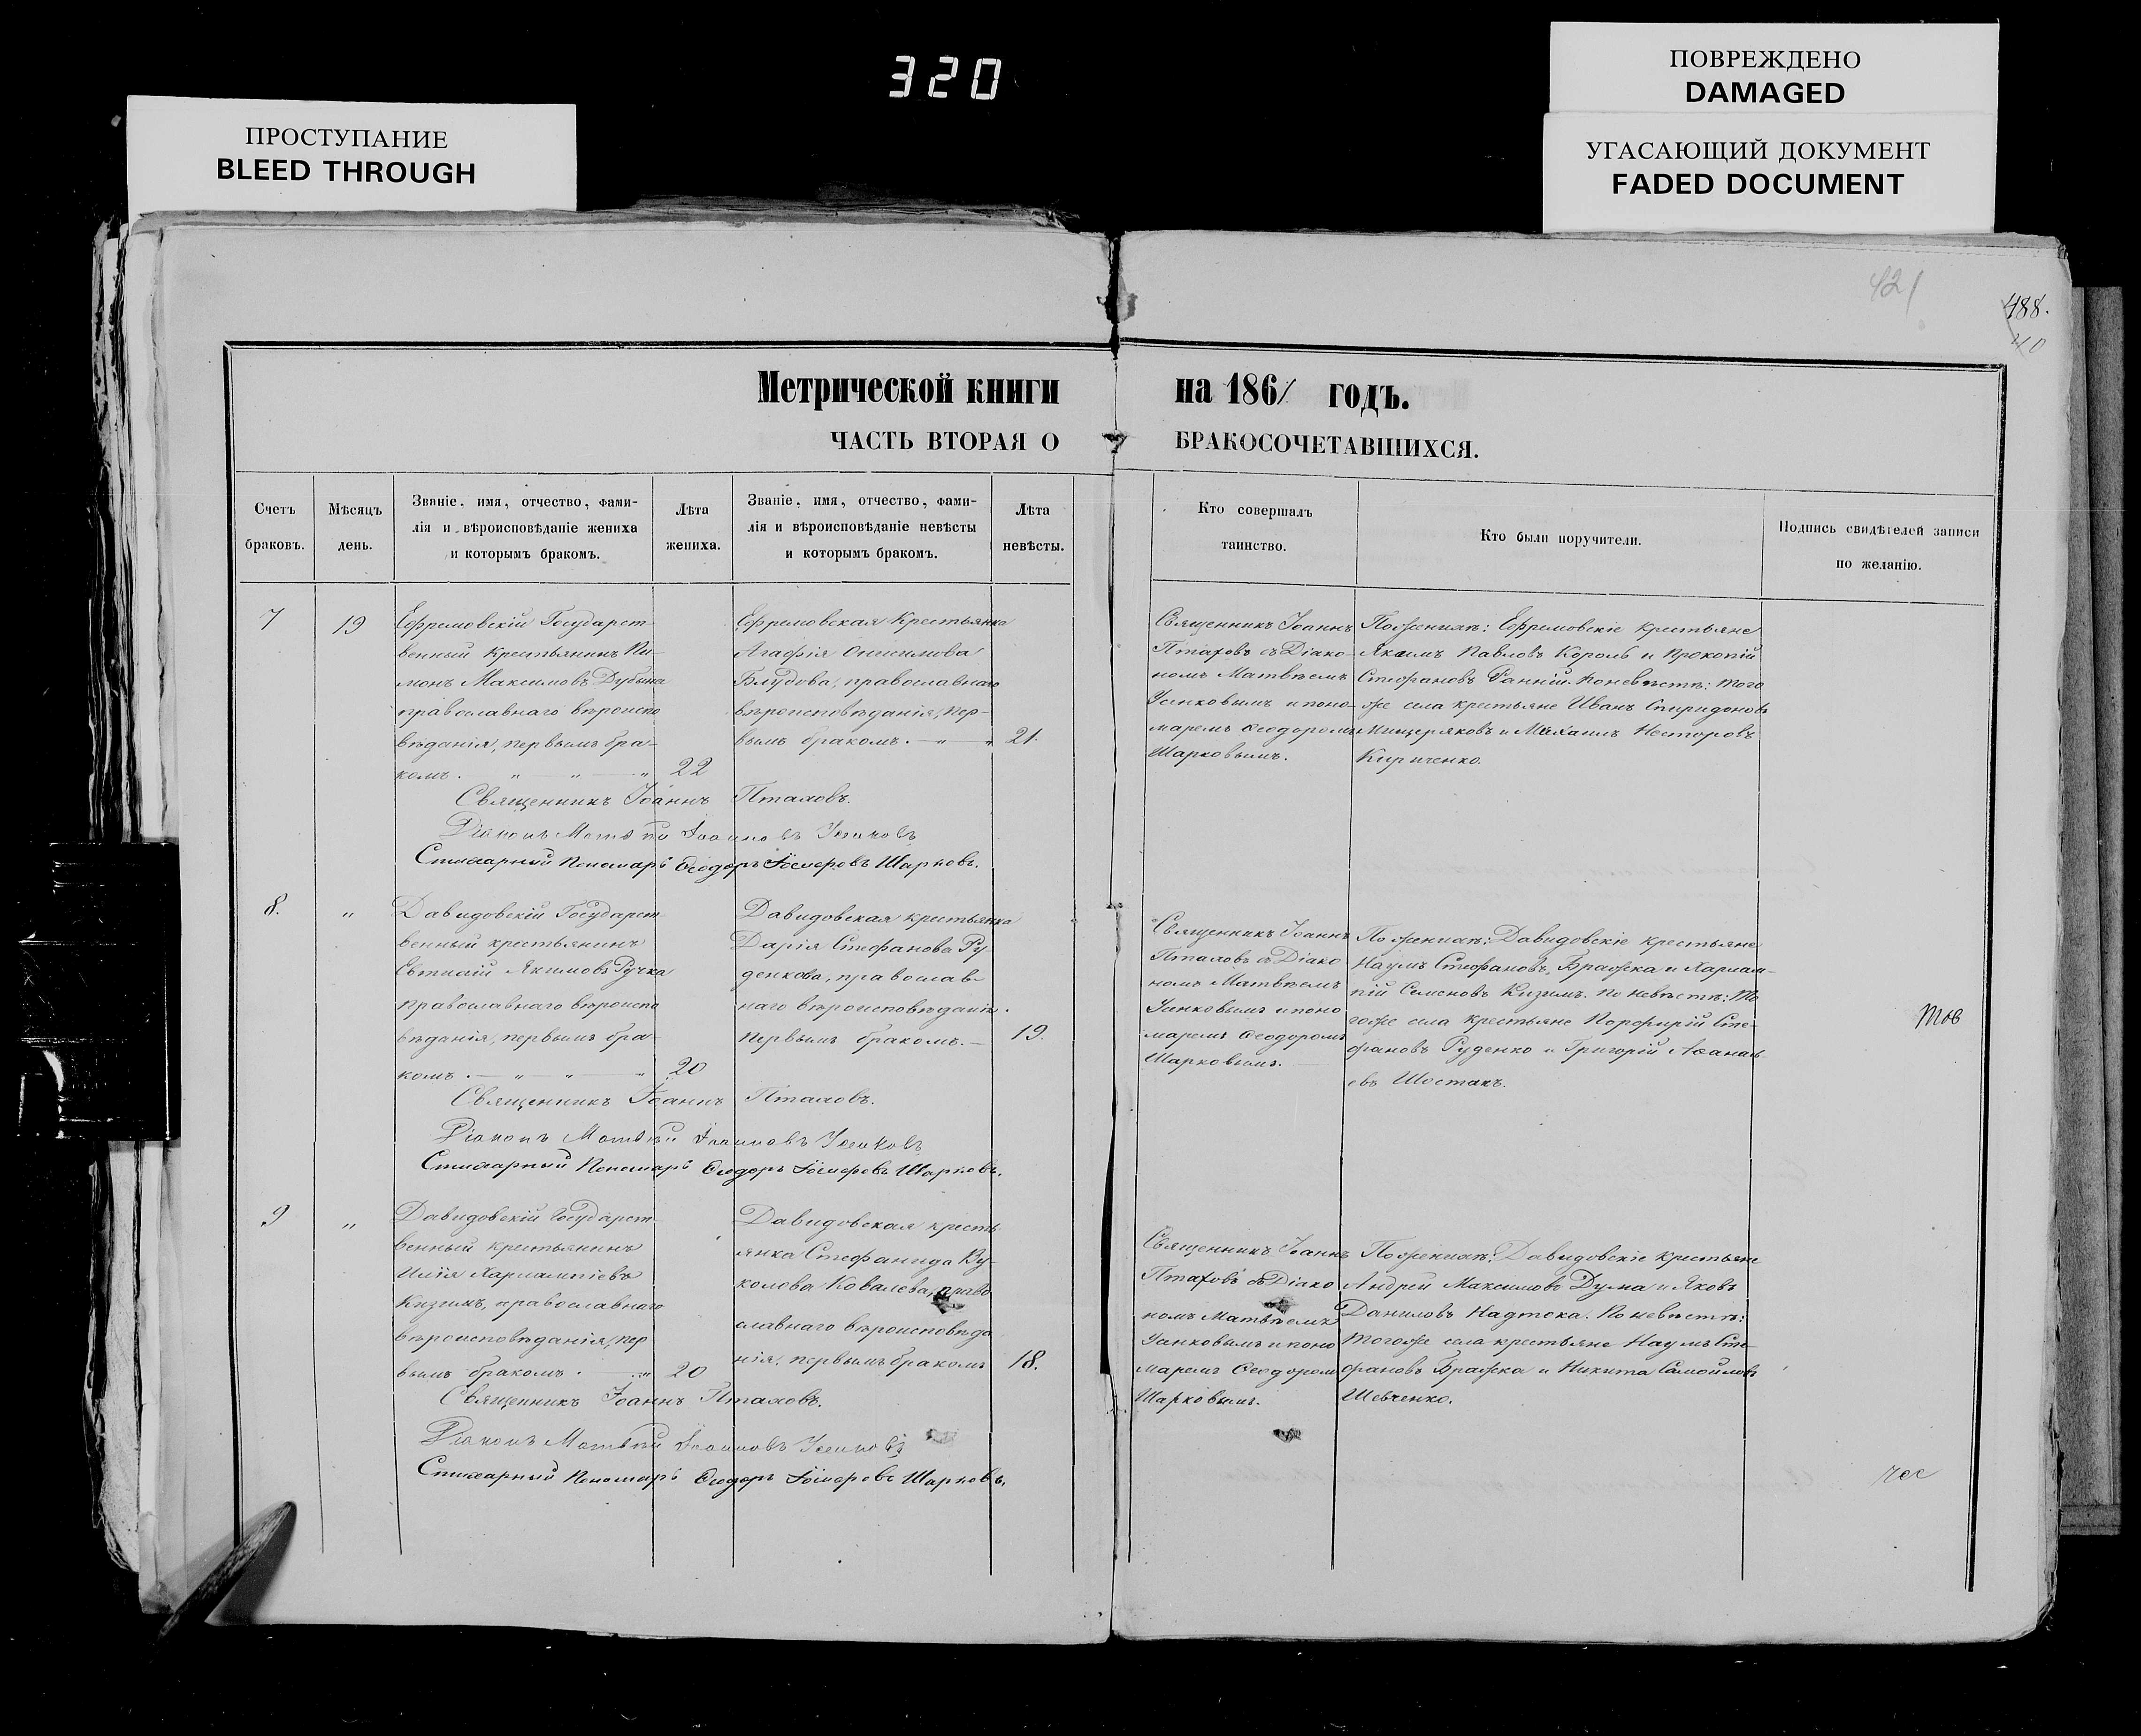 320
ПОВРЕЖДЕНО
DAMAGED
УГАСАЮЩИЙ ДОКУМЕНТ
FADED DOCUMENT
ПРОСТУПАНИЕ
BLEED THROUGH
421
488.
40
Метрической книги на 1861 годъ.
ЧАСТЬ ВТОРАЯ О БРАКОСОЧЕТАВШИХСЯ.
Счетъ
браковъ.
Мѣсяцъ
день.
Званіе, имя, отчество, фами-
лія и вѣроисповѣданіе жениха
и которымъ бракомъ.
Лѣта
жениха.
Званіе, имя, отчество, фами-
лія и вѣроисповѣданіе невѣсты
и которымъ бракомъ.
Лѣта
невѣсты.
Кто совершалъ
таинство.
Кто были поручители.
Подпись свидѣтелей записи
по желанію.
7
19
Ефремовскій Государст-
венный Крестьянинъ Пи-
монъ Максимовъ Дубына
православнаго вѣроиспо
вѣданія, первымъ бра-
комъ. 22
Ефремовская Крестьянка
Агафія Онисимова
Блудова, православнаго
вѣроисповѣданія, пер-
вымъ бракомъ. 21.
Священникъ Іоаннъ
Птаховъ съ Діако
номъ Матвѣемъ
Усиковымъ и поно-
маремъ Ѳеодоромъ
Шарковымъ.
По женихѣ: Ефремовскіе крестьяне
Якимъ Павловъ Король и Прокопій
Стефановъ Ранній. По невѣстѣ: того
же села крестьяне Иванъ Спиридоновъ
Мищеряковъ и Михаилъ Несторовъ
Кириченко.
Священникъ Іоаннъ Птаховъ.
Діаконъ Матвѣй Іоанновъ Усиковъ
Стихарный Пономарь Ѳеодоръ Шарковъ.
8.
"
Давидовскій Государст-
венный крестьянинъ
Евтихій Якимовъ Ручка
православнаго вѣроиспо
вѣданія, первымъ бра-
комъ. 20
Давидовская крестьянка
Дарія Стефанова Ру-
денкова, православ-
наго вѣроисповѣданія.
первымъ бракомъ. 19.
Священникъ Іоаннъ
Птаховъ съ Діако
номъ Матвѣемъ
Усиковымъ и поно
маремъ Ѳеодоромъ
Шарковымъ.
По женихѣ: Давидовскіе крестьяне
Наумъ Стефановъ Бражка и Харлам-
пій Семеновъ Кизимъ. По невѣстѣ: то
гоже села крестьяне Порфирій Сте-
фановъ Руденко и Григорій Аѳанась-
евъ Шостакъ.
Священникъ Іоаннъ Птаховъ.
Діаконъ Матвѣй Іоанновъ Усиковъ
Стихарный Пономарь Ѳеодоръ Шарковъ.
9
"
Давидовскій Государст-
венный крестьянинъ
Илія Харлампіевъ
Кизимъ, православнаго
вѣроисповѣданія, пер
вымъ бракомъ. 20
Давидовская кресть-
янка Стефанида Ву-
колова Ковалева, право
славнаго вѣроисповѣда
нія, первымъ бракомъ 18.
Священникъ Іоаннъ
Птаховъ съ Діако
номъ Матвѣемъ
Усиковымъ и поно
маремъ Ѳеодоромъ
Шарковымъ.
По женихѣ: Давидовскіе крестьяне
Андрей Максимовъ Дума и Яковъ
Даниловъ Надтока. По невѣстѣ:
тогоже села крестьяне Наумъ Сте-
фановъ Бражка и Никита Самойловъ
Шевченко.
Священникъ Іоаннъ Птаховъ.
Діаконъ Матвѣй Іоанновъ Усиковъ
Стихарный Пономарь Ѳеодоръ Шарковъ.